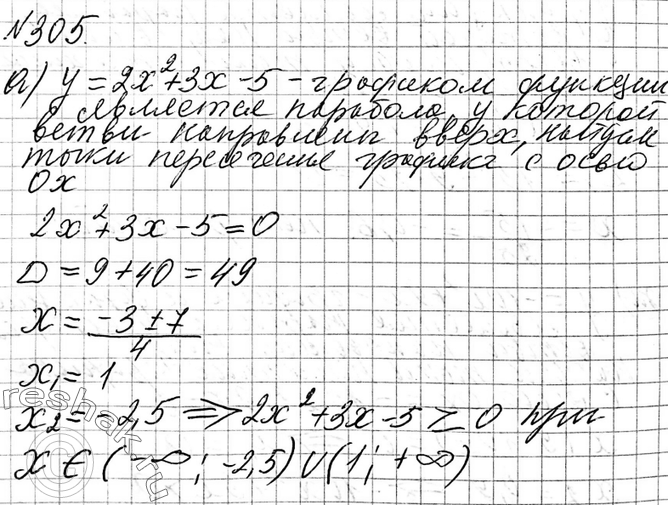 №305.
а) y = 2x² + 3x - 5 - графиком функции
является парабола, у которой
ветви направлены вверх, найдем
точки пересечения графика с осью
Ox
2x² + 3x - 5 = 0
D = 9 + 40 = 49
x = (-3 ± 7)/4
x₁ = 1
x₂ = -2,5 ⇒ 2x² + 3x - 5 > 0 при
x ∈ (-∞; -2,5) ∪ (1; +∞)
reshak.ru